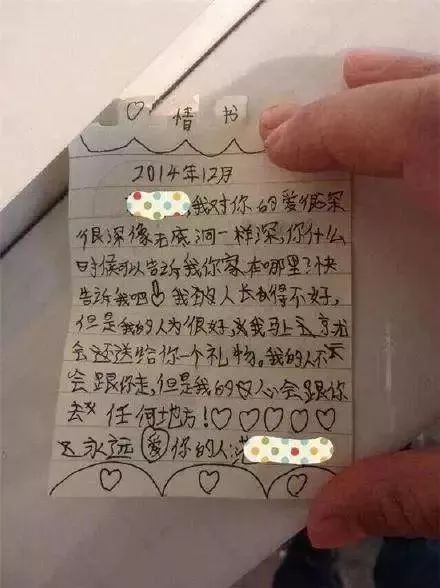 ♡ 情书
2014年12月
,我对你的爱很深
很深像无底洞一样深,你什么
时候可以告诉我你家在哪里?快
告诉我吧!我的人长得不好,
但是我的人为很好,我马上
会还送给你一个礼物。我的人不
会跟你走,但是我的心会跟你
去 任何地方!♡♡♡♡♡
永远爱你的人: